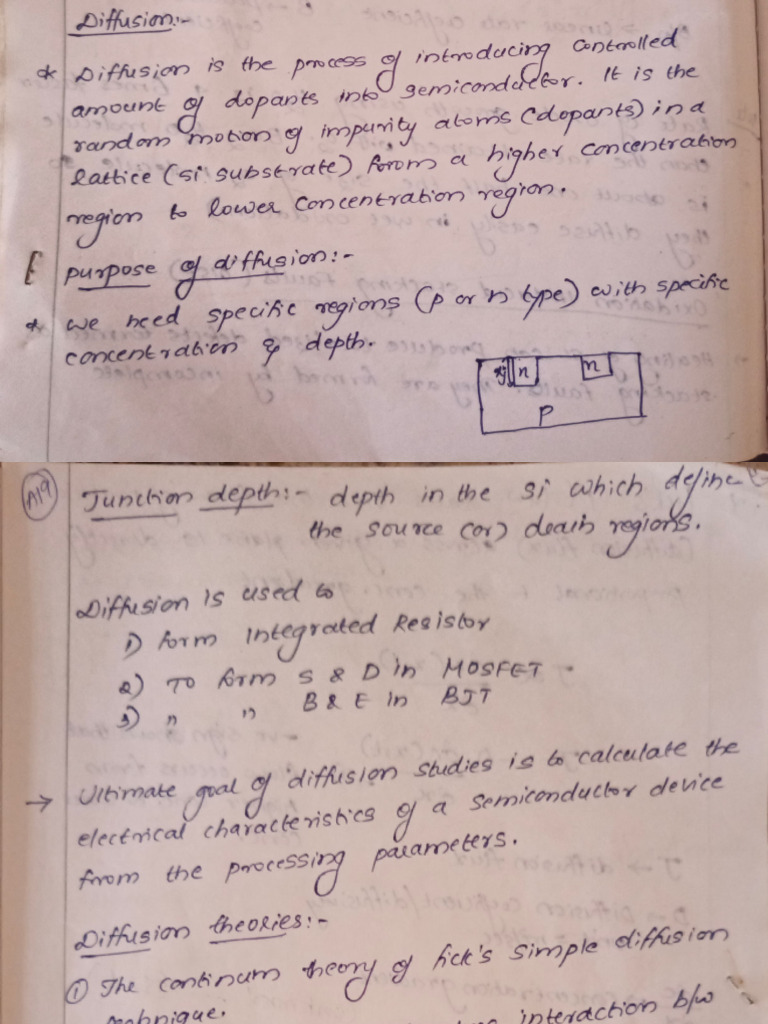 Diffusion:-
* Diffusion is the process of introducing controlled
amount of dopants into semiconductor. It is the
random motion of impurity atoms (dopants) in a
lattice (si substrate) form a higher concentration
region to lower concentration region.
purpose of diffusion:-
* we need specific regions (p or n type) with specific
concentration & depth.
xj n n
P
A19 Junction depth:- depth in the si which define
the source (or) drain regions.
Diffusion is used to
1) form integrated Resistor
2) To form S & D in MOSFET
3) " " B & E in BJT
→ Ultimate goal of diffusion studies is to calculate the
electrical characteristics of a semiconductor device
from the processing parameters.
Diffusion theories:-
① The continum theory of fick's simple diffusion
technique. interaction b/w